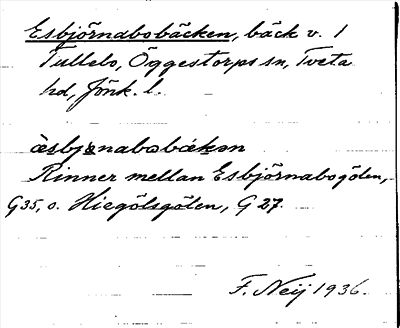 Esbjörnabobäcken, bäck v. 1
Tullebo, Öggestorps sn, Tveta
hd, Jönk. l.
èsbjɵnabobɛ́kən
Rinner mellan Esbjörnabogölen,
G35, o. Hiegölsgölen, G 27.
F. Neij 1936.